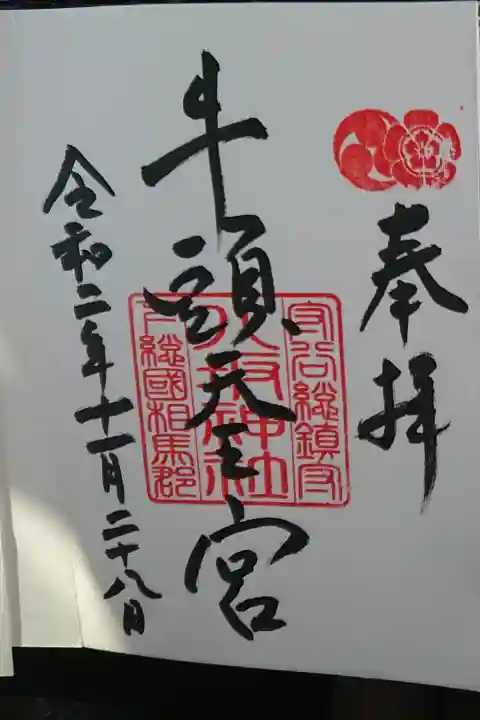 奉拝
牛頭天王宮
守谷総鎮守
八坂神社
下総國相馬郡
令和二年十一月二十八日